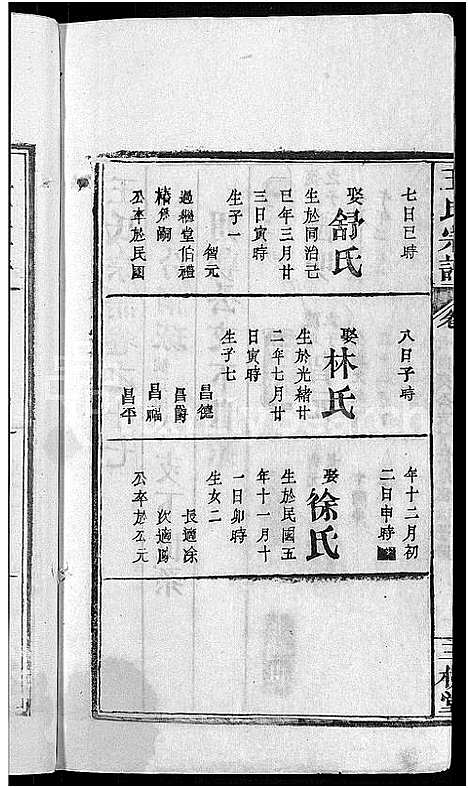 王氏宗譜
卷
三槐堂
七日巳時
娶舒氏
生於同治己
巳年三月廿
三日寅時
生子一
智元
過繼堂伯禮
椿爲嗣
公卒於民國
八日子時
娶林氏
生於光緒廿
二年七月廿
日寅時
生子七
昌德
昌爵
昌福
昌平
年十二月初
二日申時
娶徐氏
生於民國五
年十一月十
一日卯時
生女二
長適涂
次適
公卒於公元